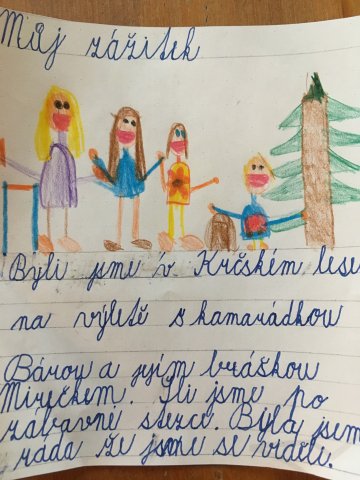 Můj zážitek
Byli jme v Krčském lese
na výletě s kamarádkou
Bárou a jejím bráškou
Mirečkem. Šli jsme po
zábavné stezce. Byla jsem
ráda že jsme se viděli.